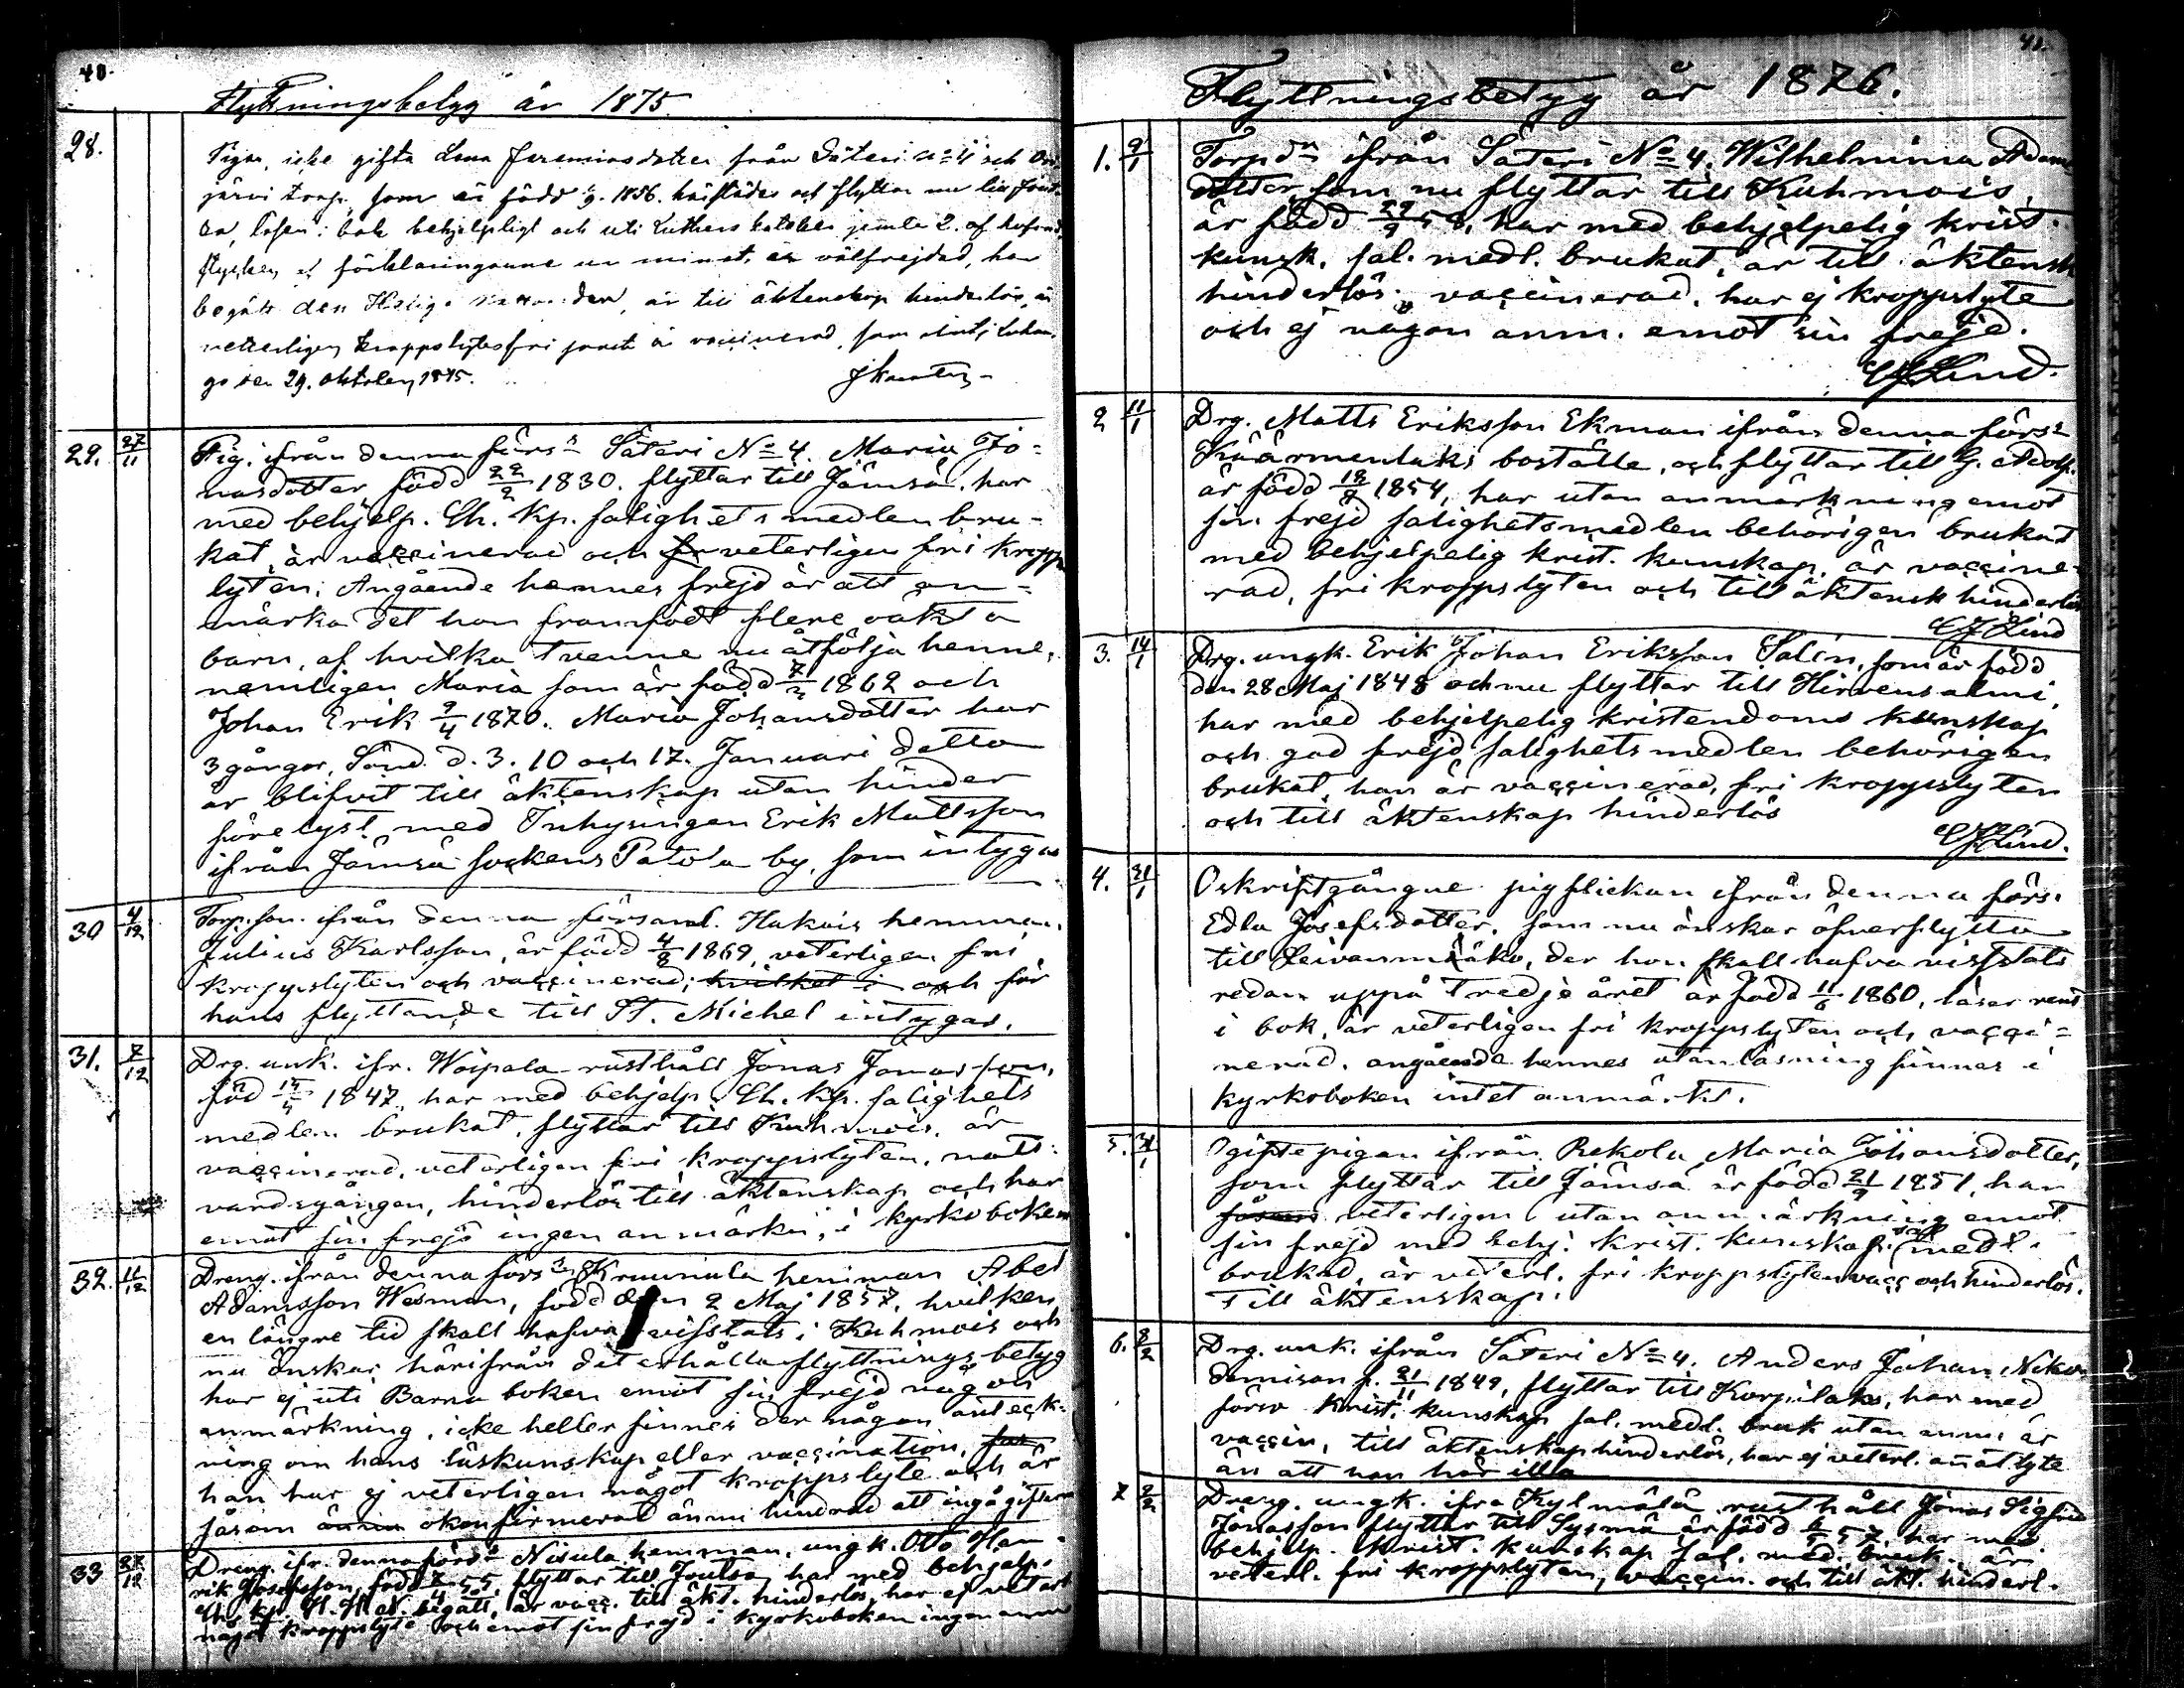 40.
Flyttningsbetyg år 1875.
28.
Pigan, icke gifta Lena Jeremiasdotter från Säteri No 4 och
järvi torp, som är född 1856. härstädes och flyttar nu till
bok behjelpligt och uti Luthers kateches jemte 2. af
förklaringarne ur minnet, är välfrejdad, har
begått den Helige Nattvarden, är till äktenskap hinderlös, är
veterligen kroppslytesfri samt är vaccinerad, som
den 29. Oktober, 1875.
29. 27/11 Pig. ifrån denna förs:s Säteri No 4. Maria Jo-
nasdotter, född 22/2 1830. flyttar till Jämsä, har
med behjelp. Ch. Kp. salighets medlen bru-
kat, är vaccinerad och fr veterligen fri kropps
lyten. Angående hennes frejd är att an-
märka det hon framfödt flere oäkta
barn, af hvilka tvenne nu åtfölja henne,
nemligen Maria som är född 7/3 1862 och
Johan Erik 9/4 1870. Maria Johansdotter har
3 gånger, Sönd. d. 3. 10 och 17. Januari detta
år blifvit till äktenskap utan hinder
förelyst med Inhysingen Erik Mattsson
ifrån Jämsä sockens Patola by, som intygas
30 4/12 Torp. son. ifrån denna församl. Hakois hemman,
Julius Karlsson, är född 4/8 1869, veterligen fri
kroppslyten och vaccinerad; hvilket i och för
hans flyttande till St. Michel intygas.
31. 7/12 Drg. unk. ifr. Woipala rusthåll Jonas Jonasson,
född 1847, har med behjelp. Ch. Kp. salighets
medlen brukat, flyttar till Kuhmois, är
vaccinerad, veterligen fri kroppslyten, natt-
vardsgången, hinderlös till äktenskap och har
emot sin frejd ingen anmärkn. i kyrkoboken
32. 11/12 Dreng. ifrån denna förs:s Kruunula hemman Abel
Adamsson Wesman, född den 2 Maj 1857, hvilken
en längre tid skall hafva vistats i Kuhmois och
nu önskar härifrån dit erhålla flyttningsbetyg
har ej uti Barna boken emot sin frejd någon
anmärkning, icke heller finnes der någon anteck-
ning om hans läskunskap eller vaccination,
han har ej veterligen något kroppslyte och är
såsom ännu okonfirmerad ännu hindrad att ingå gifterm
33 27/12 Dreng. ifr. denna förs:s Nisula hemman, ungk. Otto Hen
rik Josefsson, född 55, flyttar till Joutsa, har med behjelp.
Ch. kp. H. H. N. begått, är vacc. till äkt. hinderlös, har ej veterl
något kroppslyte och emot sin frejd i kyrkoboken ingen anm
41.
Flyttningsbetyg år 1876.
1. 9/1 Torpd:n ifrån Säteri No 4. Wilhelmina Adams
dotter, som nu flyttar till Kuhmois,
är född 29/9 58, har med behjelpelig krist.
kunsk. sal. medl. brukat, är till äktensk
hinderlös, vaccinerad, har ej kroppslyte
och ej någon anm. emot sin frejd.
CJLind.
2 11/1 Drg. Matts Eriksson Ekman ifrån denna förs:s
Käärmenlaks boställe, och flyttar till G. Adolfs
är född 1854, har utan anmärkning emot
sin frejd salighetsmedlen behörigen brukat
med behjelpelig krist. kunskap, är vaccine-
rad, fri kroppslyten och till äktensk hinderlös
CJ Lind
3. 14/1 Drg. ungk. Erik Johan Eriksson Salin, som är född
den 28 Maj 1848 och nu flyttar till Hirvensalmi,
har med behjelpelig kristendoms kunskap
och god frejd salighets medlen behörigen
brukat, han är vaccinerad, fri kroppslyten
och till äktenskap hinderlös
CJLind.
4. 31/1 Oskriftgångne pigflickan ifrån denna förs.
Edla Josefsdotter, som nu önskar öfverflytta
till Leivonmäki, der hon skall hafva vistats
redan uppå tredje året är född 11/6 1860, läser rent
i bok, är veterligen fri kroppslyten och vacci-
nerad. angående hennes utanläsning finnes i
kyrkoboken intet anmärkt.
5. 31/1 Ogifte pigan ifrån Rekola Maria Johansdotter,
som flyttar till Jämsä är född 21/9 1851, har
såsom veterligen utan anmärkning emot
sin frejd med behj. krist. kunskap sal medl.
brukad, är veterl. fri kroppslyten vacc och hinderlös
till äktenskap.
6. 8/2 Drg. unk. ifrån Säteri No 4. Anders Johan Niko
demison f. 21/11 1849, flyttar till Korpilaks, har med
försv krist. kunskap sal. medl. bruk utan anm. är
vaccin, till äktenskap hinderlös, har ej veterl. añat lyte
än att han hör illa
7 Dreng. ungk. ifrå Kylmälä rusthåll Jonas Sigfrid
Jonasson flyttar till Sysmä är född 57, har med
behjelp. krist. kunskap sal. med. bruk. är
veterl. fri kroppslyten, vaccin. och till äkt. hinderl.